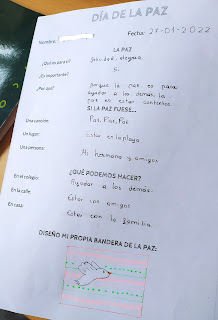 DÍA DE LA PAZ
Nombre: Fecha: 27-01-2022
LA PAZ
¿Qué es para ti? Solidad, alegria.
¿Es importante? Si
¿Por qué? porque la paz es para
ayudar a los demás. la
paz es estar contentos.
SI LA PAZ FUESE...
Una canción: Paz, Paz, Paz
Un lugar: Estar en la playa
Una persona: Mi hermano y amigos
¿QUÉ PODEMOS HACER?
En el colegio: Ayudar a los demás.
En la calle: Estar con amigos
En casa: Estar con la familia.
DISEÑO MI PROPIA BANDERA DE LA PAZ: